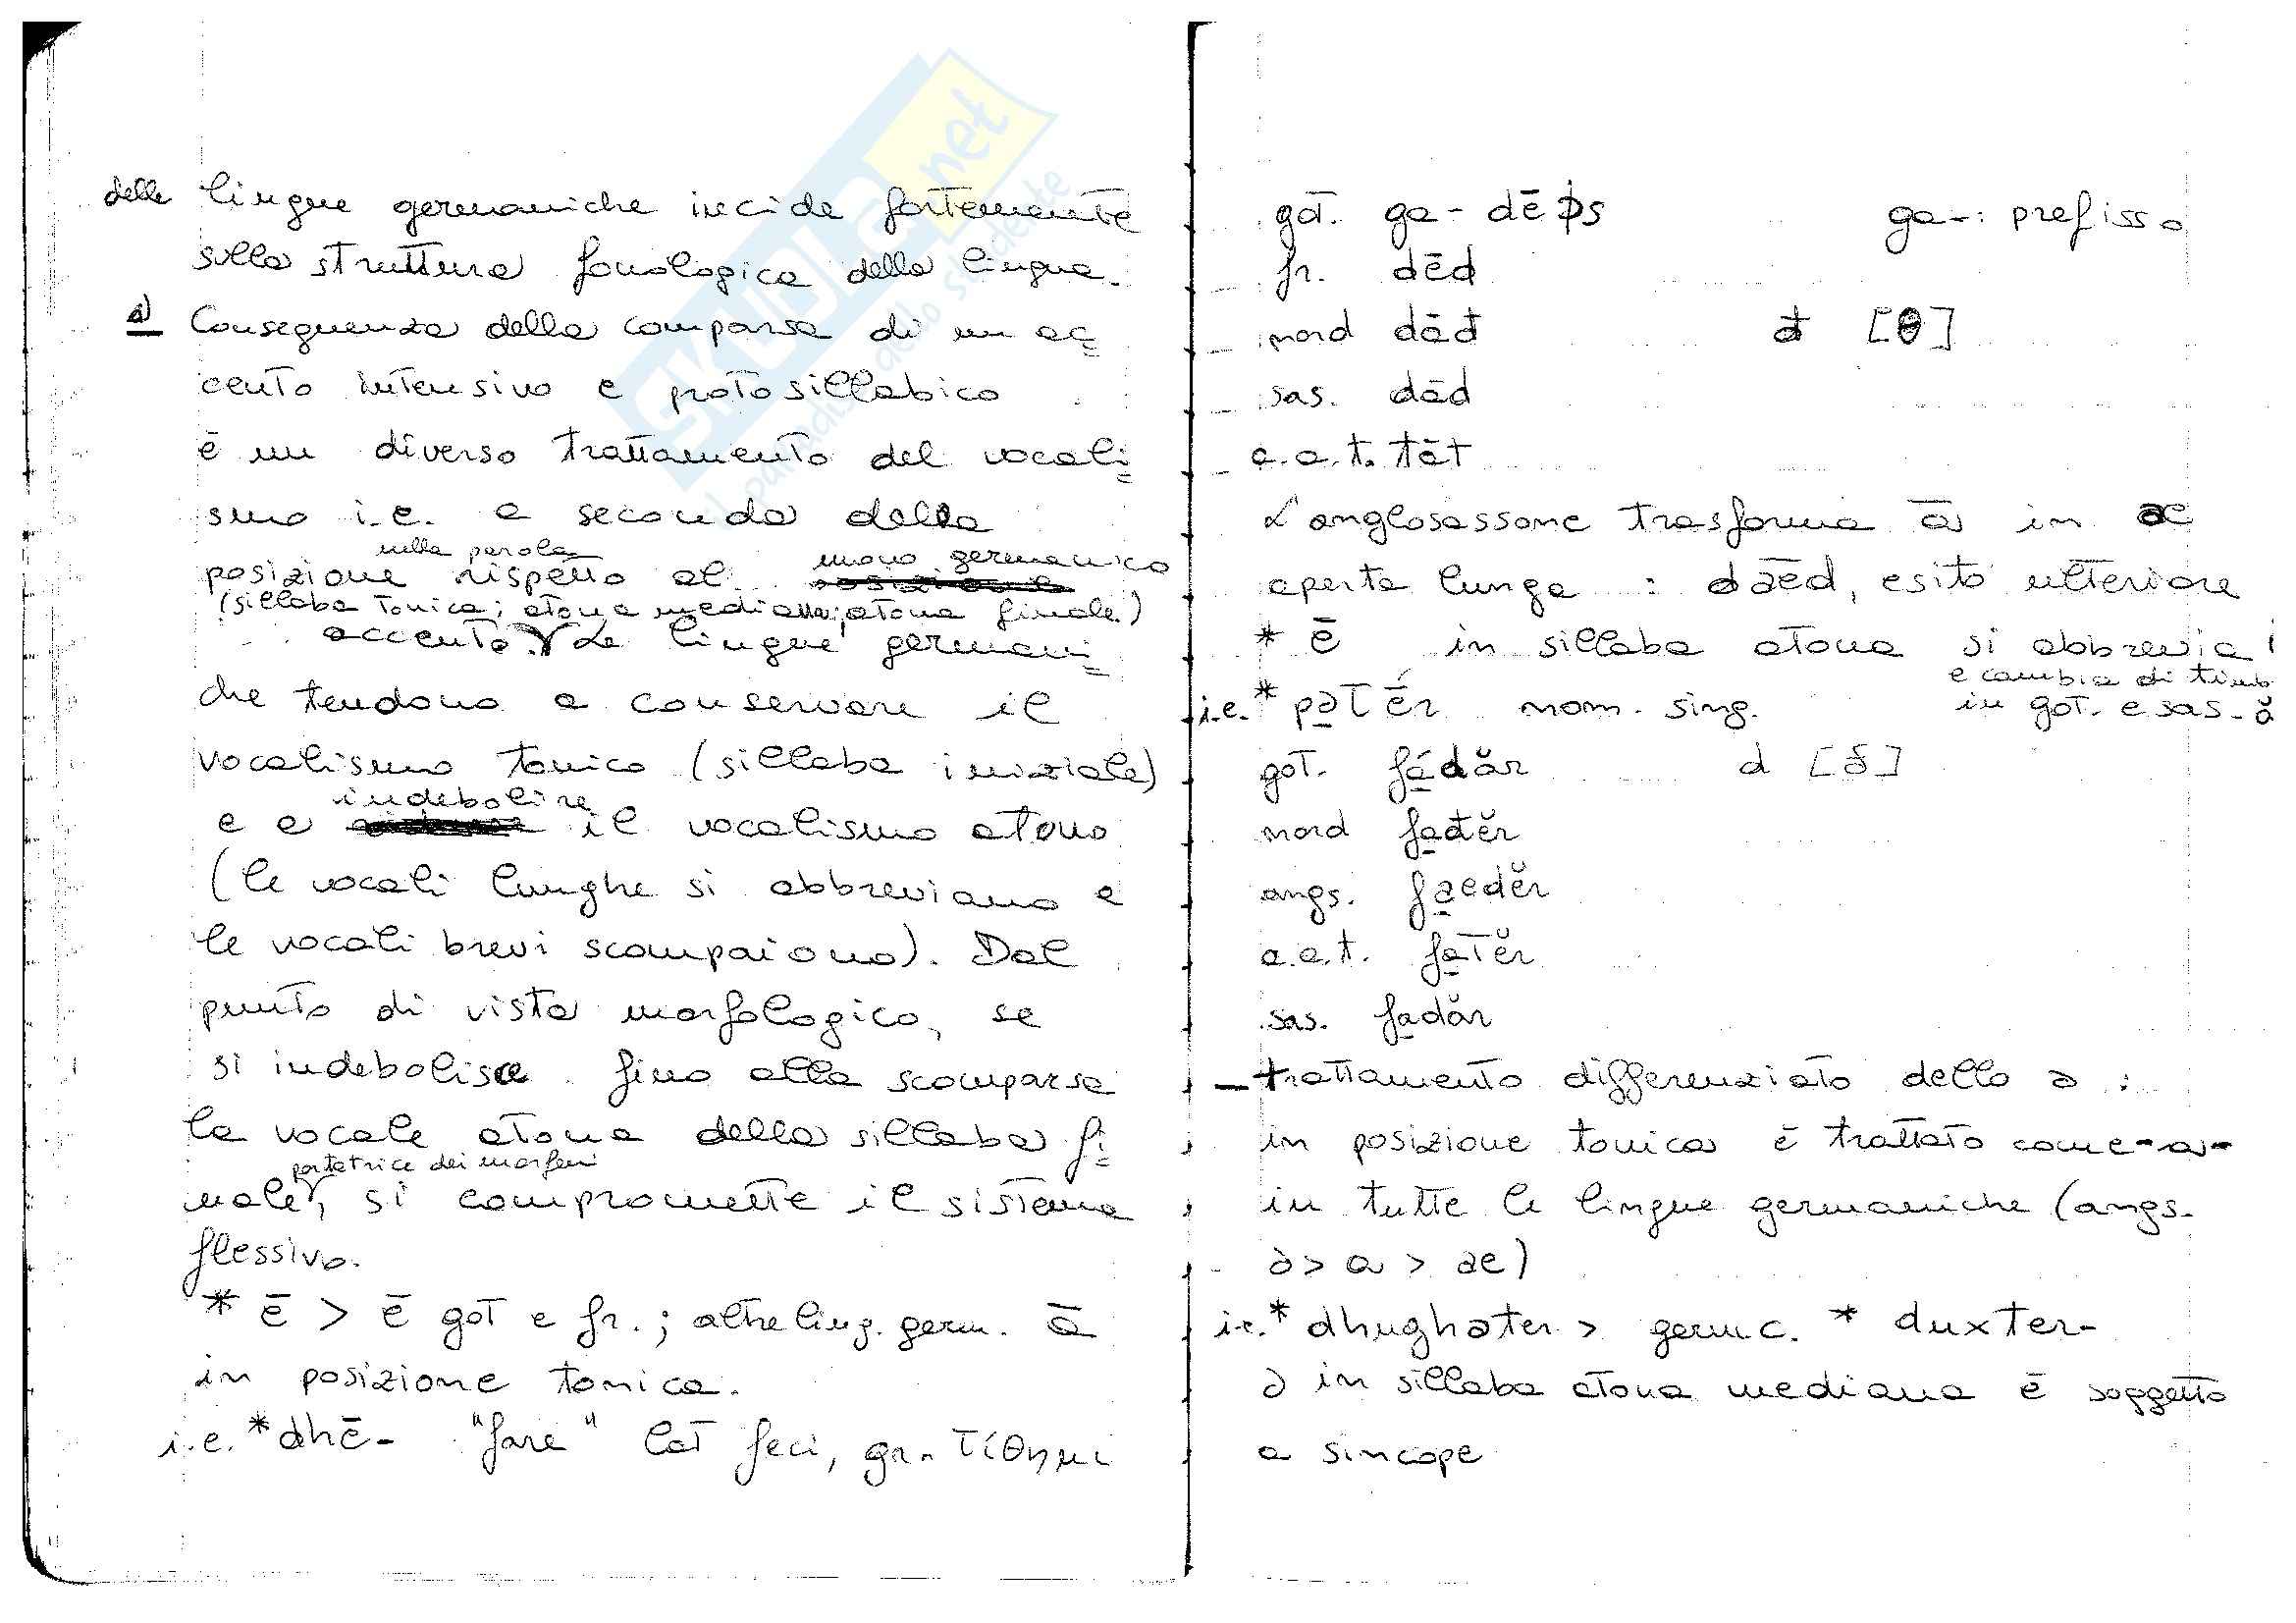 delle lingue germaniche incide fortemente
sulla struttura fonologica della lingua.
a) Conseguenza della comparsa di un ac=
cento intensivo e protosillabico
è un diverso trattamento del vocali=
smo i.e. a seconda della
nella parola nuovo germanico
posizione rispetto al
(sillaba tonica; atona mediana; atona finale.)
accento. Le lingue germani=
che tendono a conservare il
vocalismo tonico (sillaba iniziale)
indebolire
e a il vocalismo atono
(le vocali lunghe si abbreviano e
le vocali brevi scompaiono). Dal
punto di vista morfologico, se
si indebolisce fino alla scomparsa
la vocale atona della sillaba fi=
portatrice dei morfemi
nale, si compromette il sistema
flessivo.
* ē > ē got e fr.; altre ling. germ. ā
in posizione tonica.
i.e. *dhē- "fare" lat feci, gr. τίθημι
got. ga-dēþs ga-: prefisso
fr. dēd
nord dāđ đ [θ]
sas. dād
a.a.t. tāt
L'anglosassone trasforma ā in ae
aperta lunga : dāēd, esito ulteriore
* ē in sillaba atona si abbrevia
e cambia di
i.e. * pətḗr nom. sing. in got. e sas. ă
got. fádăr d [ð]
nord fađĕr
angs. faedĕr
a.a.t. fatĕr
sas. fadăr
- trattamento differenziato dello ə :
in posizione tonica è trattato come -a-
in tutte le lingue germaniche (angs.
ə > a > ae)
i.e. * dhughəter > germc. * duxter-
ə in sillaba atona mediana è soggetto
a sincope
SKUOLA.net
il paradiso dello studente